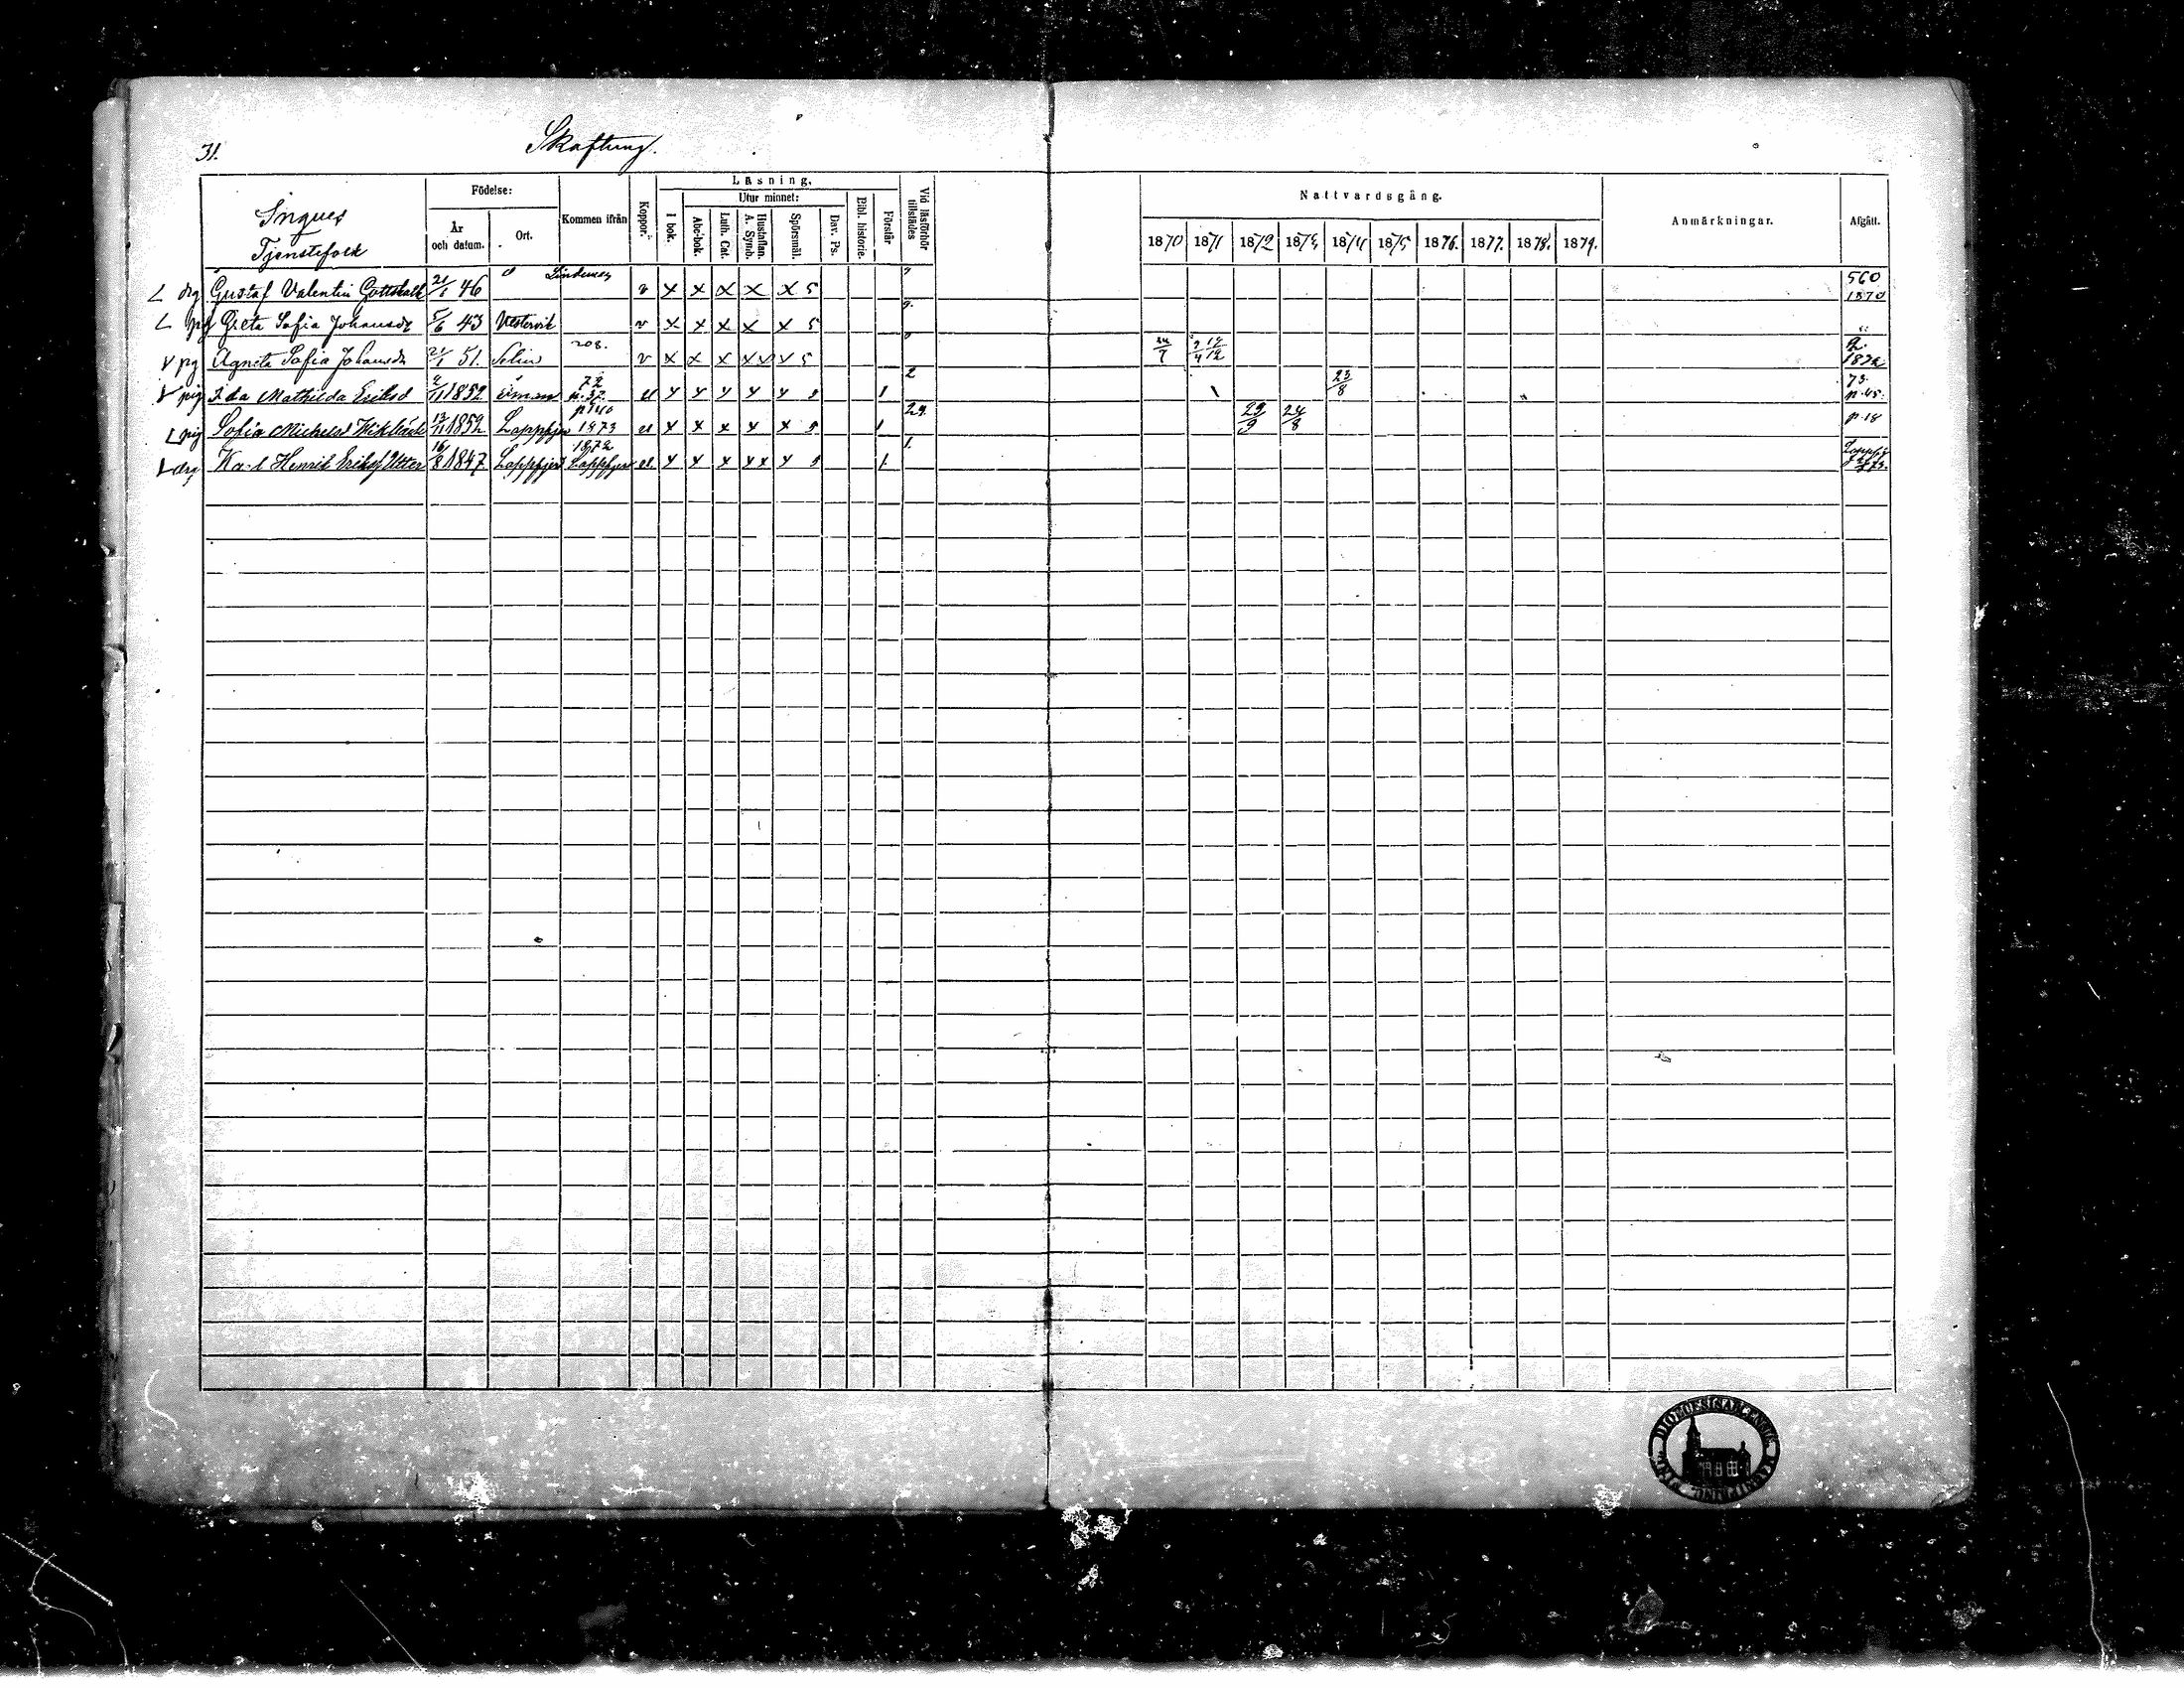 31.
Skaftung.
Ingves
Tjenstefolk
Födelse:
År och datum.
Ort.
Kommen ifrån
Koppor.
Läsning.
I bok.
Utur minnet:
Abc-bok.
Luth. Cat.
Hustaflan. A. Symb.
Spörsmål.
Dav. Ps.
Bibl. historie.
Förstår
Vid läsförhör tillstädes
Nattvardsgång.
1870 1871 1872 1873 1874 1875 1876. 1877. 1878. 1879.
Anmärkningar.
Afgått.
drg Gustaf Valentin Gottskalk 21/1 46 v x x x x x 5 560 1870
pg Greta Sofia Johansdr 5/6 43 v x x x x x 5
v pg Agneta Sofia Johansdr 21/1 51. 208. v x x x x x x 5 24/7 1872
pig Ida Mathilda Eriksd 2/11 1852 72 p. 37 x x x x x 1 2 23/8 73 p. 45.
pig Sofia Michelsd 13/11 1852 Lappfjerd p 140 1873 x x x x x 1 29/9 24/8 p. 18
drg Karl Henrik Eriks Utter 16/8 1847 Lappfjerd 1872 Lappfjerd x x x x x x 1. 1.